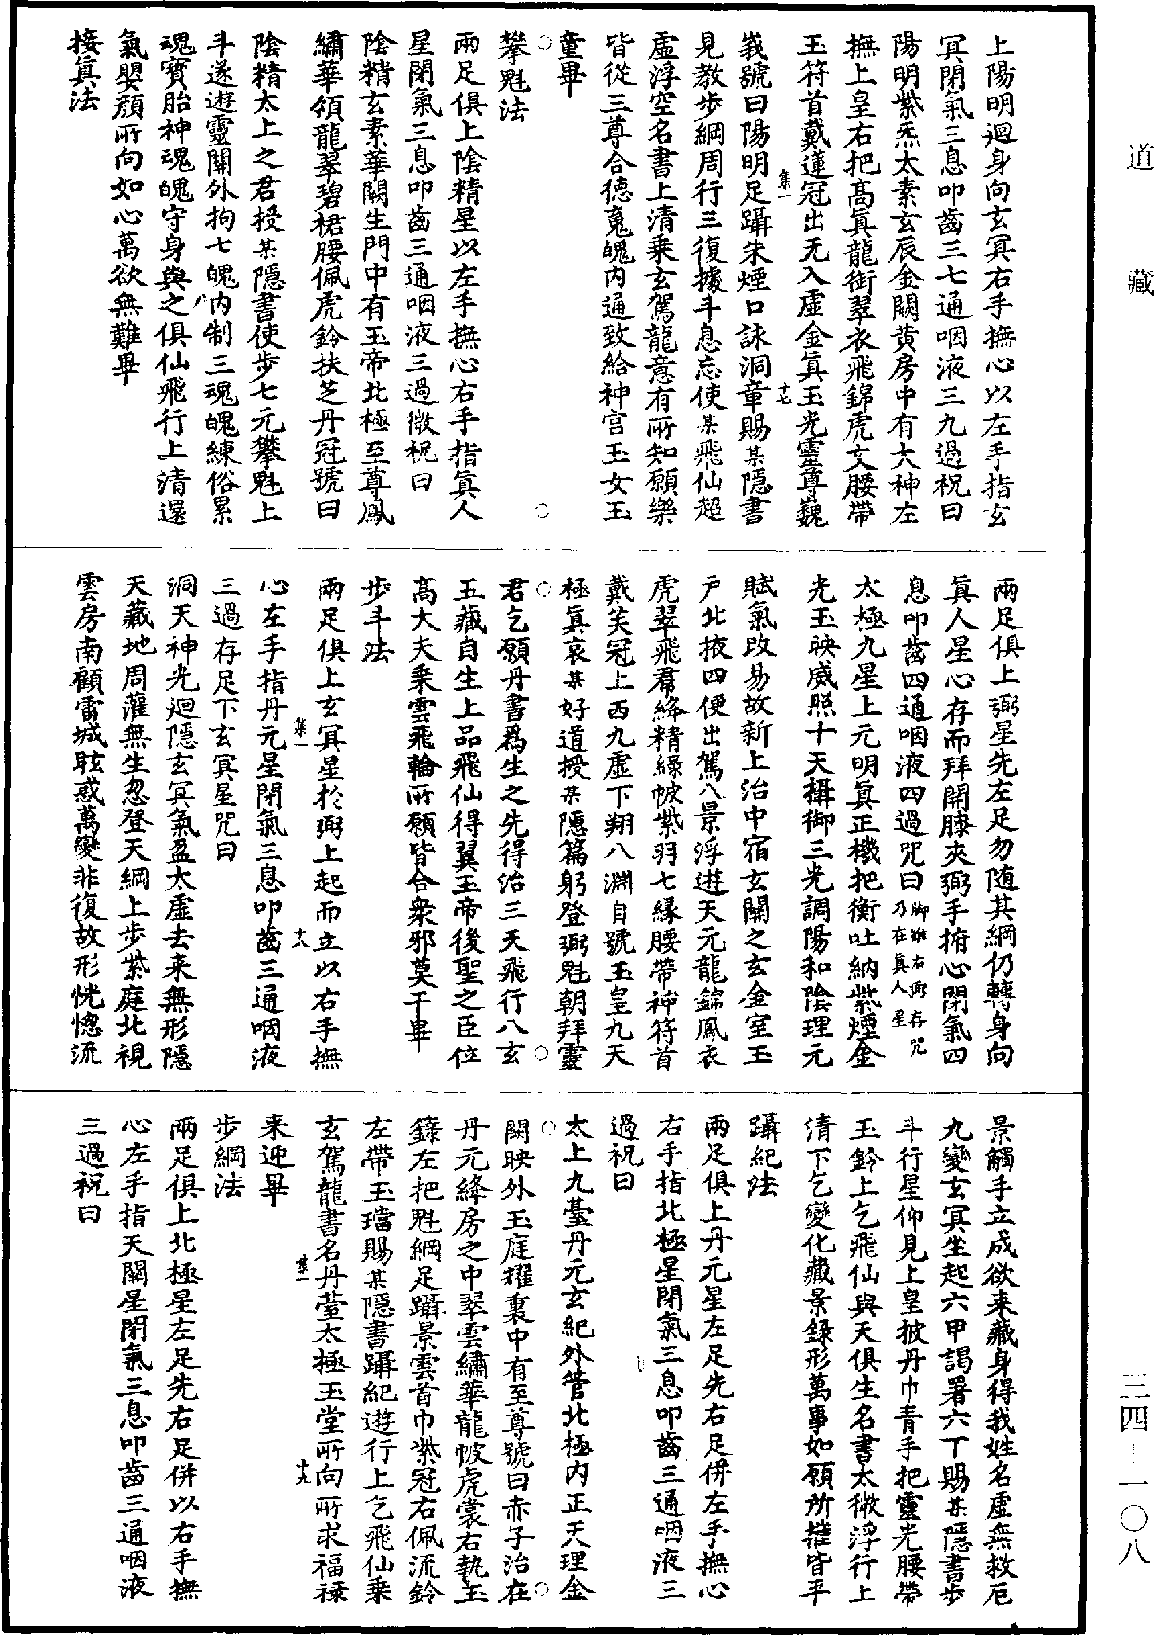 道藏
三四-一〇八
上陽明迴身向玄冥右手撫心以左手指玄
冥閉氣三息叩齒三七通咽液三九過祝曰
陽明紫炁太素玄辰金闕黃房中有大神左
撫上皇右把高真龍銜翠衣飛錦虎文腰帶
玉符首戴蓮冠出无入虛金真玉光靈尊巍
集一
十七
峩號曰陽明足躡朱煙口詠洞章賜某隱書
見教步綱周行三復據斗息忘使某飛仙超
虛浮空名書上清乘玄駕龍意有所知願樂
皆從三尊合德䰟魄内通致給神宫玉女玉
童畢
攀魁法
兩足俱上陰精星以左手撫心右手指真人
星閉氣三息叩齒三通咽液三過微祝曰
陰精玄素華闕生門中有玉帝北極至尊鳳
繡華領龍翠碧裙腰佩虎鈴扶芝丹冠號曰
陰精太上之君授某隱書使步七元攀魁上
斗遂遊靈關外拘七魄内制三魂魄練俗累
魂寶胎神魂魄守身與之俱仙飛行上清還
氣嬰顏所向如心萬欲無難畢
接真法
兩足俱上弼星先左足勿隨其綱仍轉身向
真人星心存而拜開膝夾弼手捬心閉氣四
息叩齒四通咽液四過咒曰脚雖右廻存咒乃在真人星
太極九星上元明真正機把衡吐納紫煙金
光玉映威照十天攝御三光調陽和陰理元
賦氣改易故新上治中宿玄關之玄金室玉
戶北掖四便出駕八景浮遊天元龍錦鳳衣
虎翠飛羣絳精綠帔紫羽七緣腰帶神符首
戴芙冠上西九虛下翔八淵自號玉皇九天
極真哀某好道授某隱篇躬登弼魁朝拜靈
君乞願丹書爲生之先得治三天飛行八玄
五藏自生上品飛仙得翼玉帝後聖之臣位
高大夫乘雲飛輪所願皆合衆邪莫干畢
步斗法
兩足俱上玄冥星於弼上起而立以右手撫
集一
十八
心左手指丹元星閉氣三息叩齒三通咽液
三過存足下玄冥星咒曰
洞天神光迴隱玄冥氣盈太虛去来無形隱
天藏地周灌無生忽登天綱上步紫庭北視
雲房南顧雷城眩惑萬變非復故形恍惚流
景觸手立成欲来藏身得我姓名虛無救厄
九變玄冥坐起六甲謁署六丁賜某隱書步
斗行星仰見上皇披丹巾青手把靈光腰帶
玉鈴上乞飛仙與天俱生名書太微浮行上
清下乞變化藏景錄形萬事如願所摧皆平
躡紀法
兩足俱上丹元星左足先右足併左手撫心
右手指北極星閉氣三息叩齒三通咽液三
過祝曰
太上九臺丹元玄紀外管北極内正天理金
闕映外玉庭耀裏中有至尊號曰赤子治在
丹元絳房之中翠雲繡華龍帔虎裳右執玉
籙左把魁綱足躡景雲首巾紫冠右佩流鈴
左帶玉璫賜某隱書躡紀遊行上乞飛仙乘
玄駕龍書名丹薹太極玉堂所向所求福祿
集一
十九
来迎畢
步綱法
兩足俱上北極星左足先右足併以右手撫
心左手指天關星閉氣三息叩齒三通咽液
三過祝曰